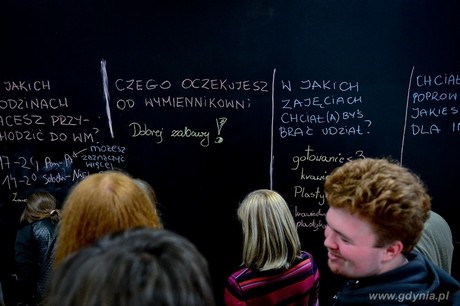 JAKICH
ODZINACH
HCESZ PRZY-
HODZIĆ DO WM?
możesz
zaznaczyć
więcej
17-21 Pon-Pt
14-20 Sob
CZEGO OCZEKUJESZ
OD WYMIENNIKOWNI:
Dobrej zabawy!
W JAKICH
ZAJĘCIACH
CHCIAŁ(A)BYŚ
BRAĆ UDZIAŁ?
gotowanie
krawie
Plasty
krawiec
plastyka
CHCIAŁ
POPROW
JAKIEŚ
DLA IN
www.gdynia.pl